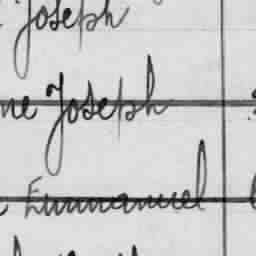 Joseph
ne Joseph
Emmanuel